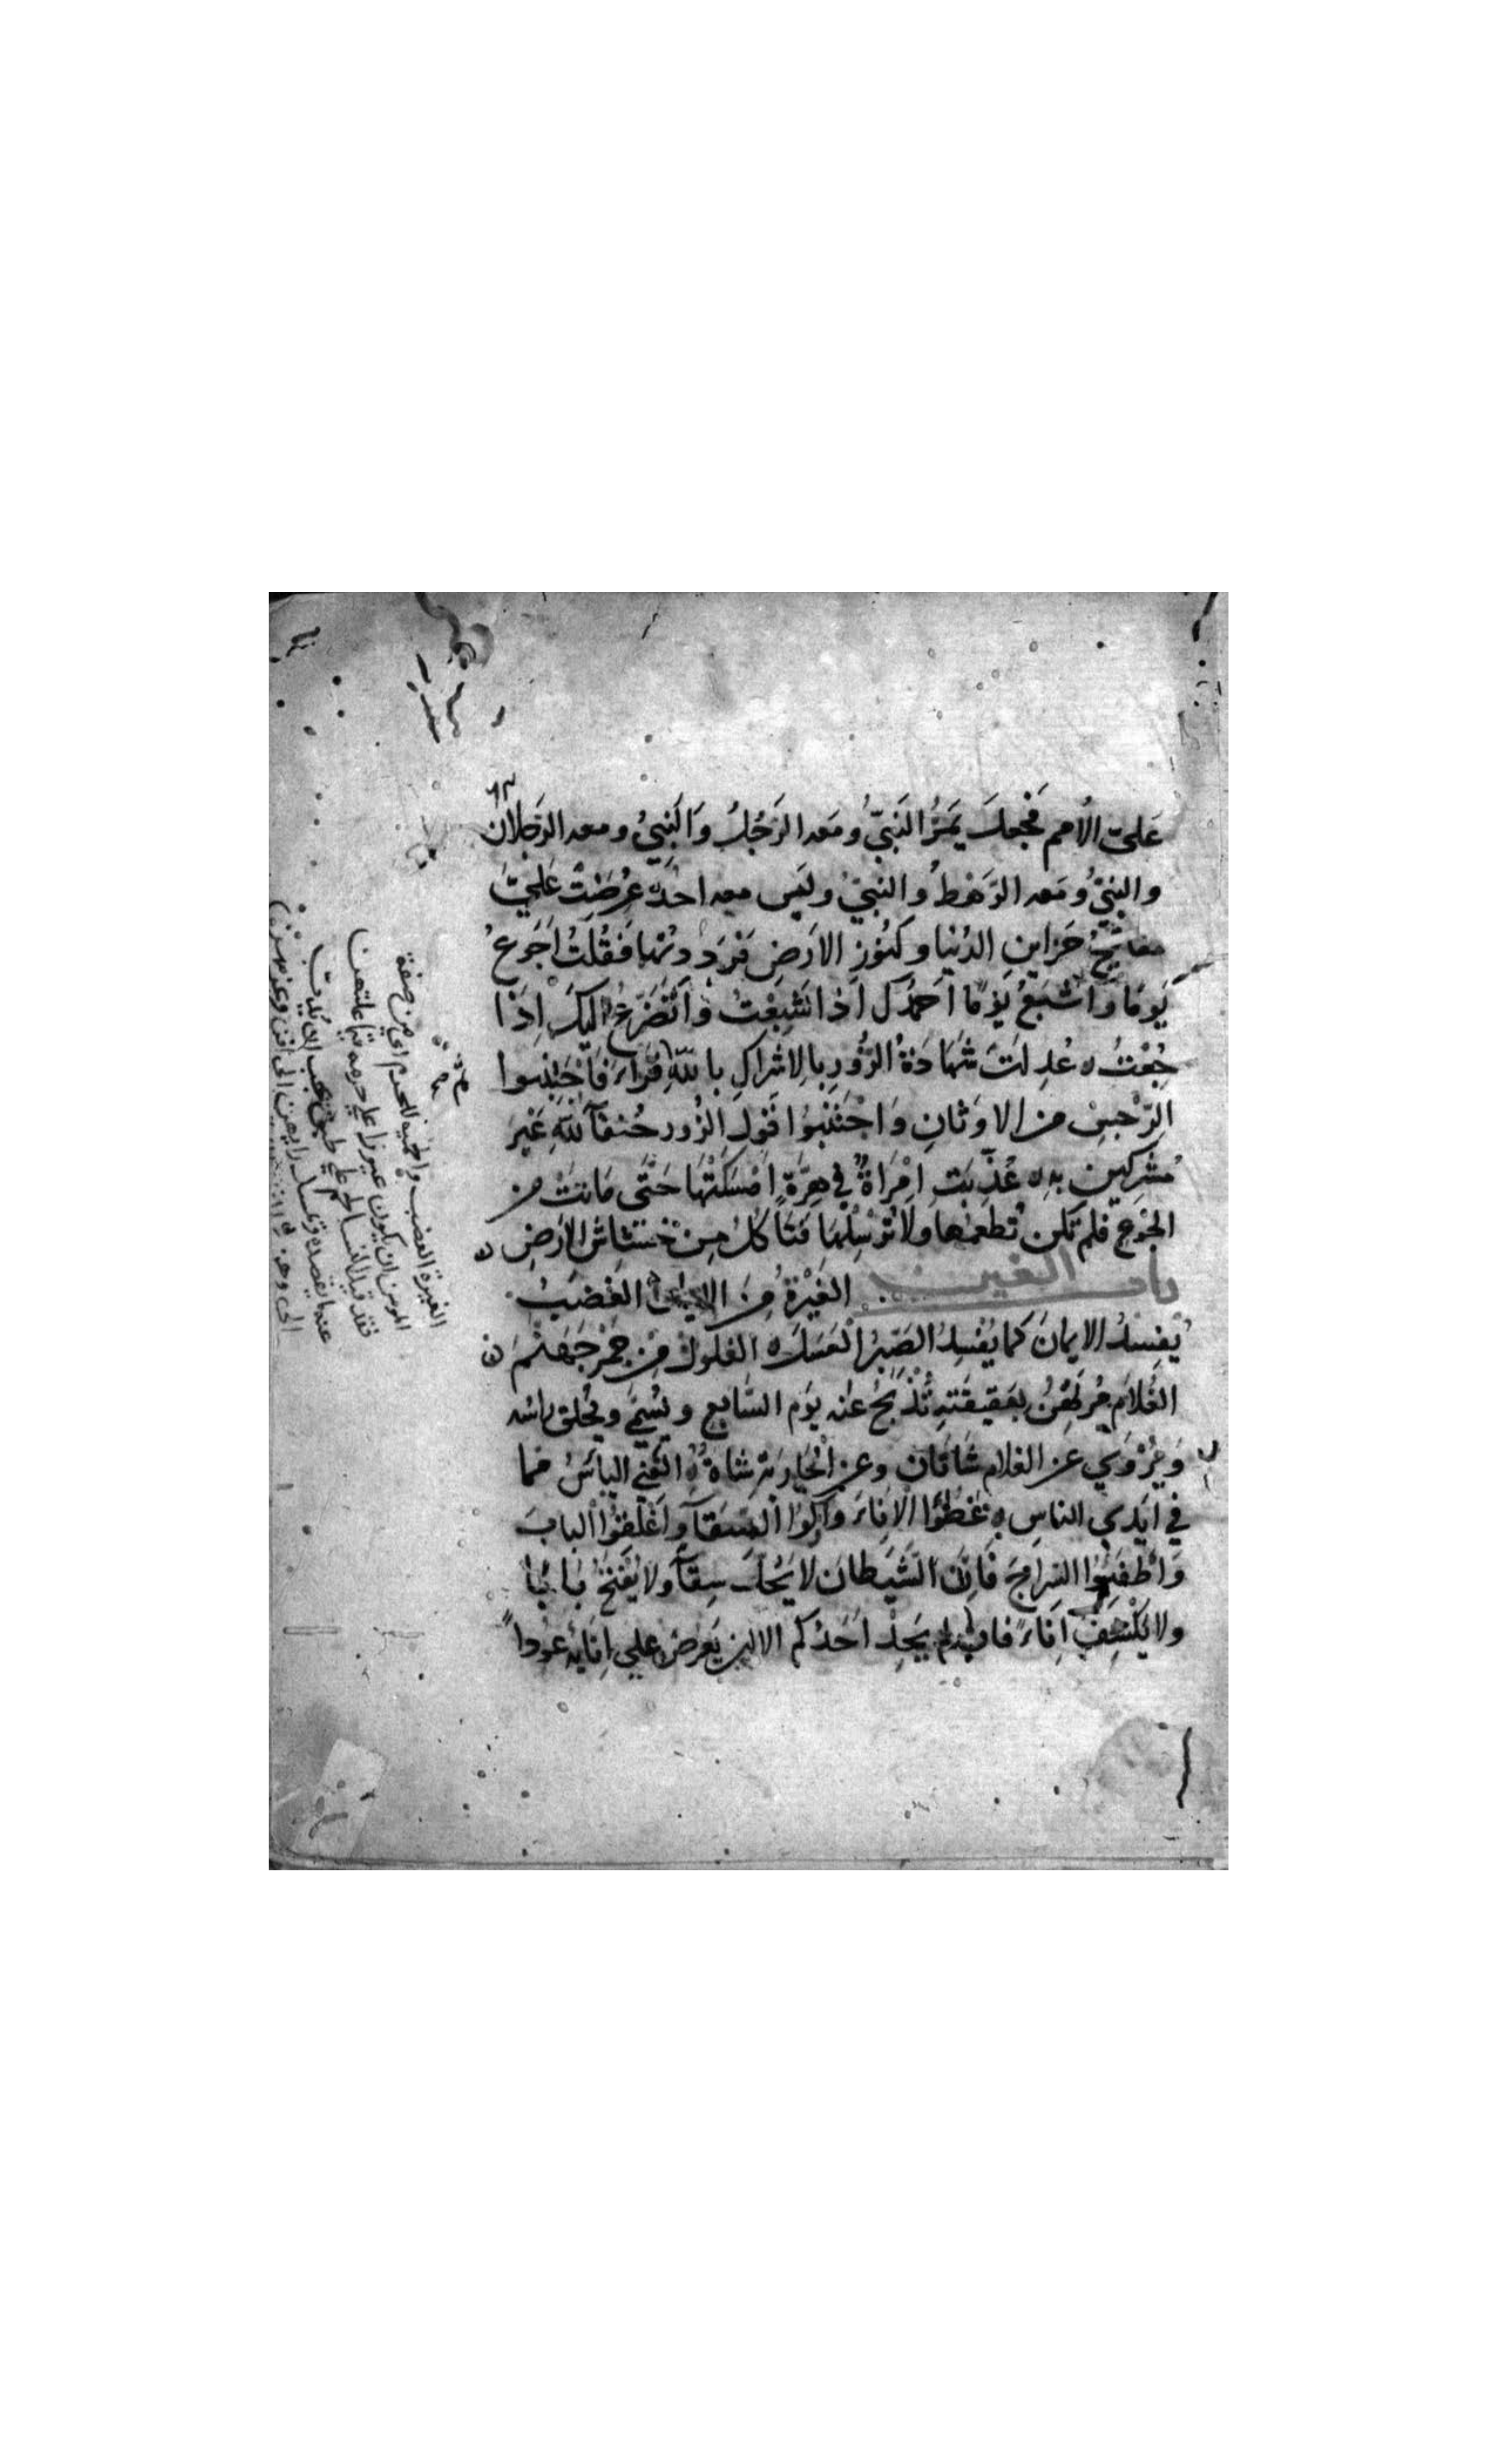 ٦٣
عَليّ الأمم فجعل يَمرُّ النَبيّ ومَعه الرَجُلُ وَالنَبيُ ومعه الرَجلان
والنبيّ ومَعه الرَهطُ والنبيّ وليَس معه احدٌ عُرِضَتْ عَليَّ
مفاتيحُ خزاينِ الدُنيا وكنُوزِ الارَضِ فرَددتُها فقُلتُ اَجَوعُ
يَومًا وَاَشبَعُ يَومًا اَحمَدُك اذا شبِعْتُ وَاَتَضَرعُ اليكَ اِذَا
جُعْتُ ه عُدِلَتَ شهَادَةُ الزُورِ بالاشراكِ باللهِ قراءَ فَاجْتَنِبوا
الرّجْسَ من الاوَثانِ وَاجْتَنبوُا قَولَ الزُور حُنفآ للهِ غَيرَ
مُشركينَ بهِ ه عُذّبَت اِمْرَاةٌ في هِرَّةٍ اَمْسَكَتْهَا حَتَّى مَاتتْ من
الجُوعِ فلم تكن تُطعمها ولا تُرسِلُها فتَاكُلُ مِنْ خَشَاشِ الارَضِ ه
باب الغين الغَيْرةُ مِنَ الايمان الغَضَبُ
يُفسِدُ الايمانَ كما يُفْسِدُ الصَبِرُ العَسَلَ ه الغلولُ مِن جَمْرِ جَهَنّمَ ه
الغُلامُ مُرتَهَنٌ بعَقيقَتهِ تُذْبَحُ عنه يَوم السَّابع ويُسَمّي ويُحلق راسُه
وَيُرْوَي عَن الغلام شَاتَان وعن الجَاريَةِ شاة ه الغني اليأسُ مما
في ايَدي الناسِ ه غَطُّوا الاِناءَ وَاَوكوا السّقآ وَاَغْلِقُوا البابَ
وَاَطْفِئُوا السِراجَ فَاِنّ الشَيطانَ لا يَحُلّ سِقآ ولا يَفْتَحُ بابًا
ولا يَكْشِفُ اِناءً فان لم يَجِدْ اَحَدُكم الا ان يَعرضَ علي اِنَايهِ عوُدًا
الغيرة الغضب والحمية للحرم اي من صفة
المومن ان يكون غيورا علي حرمه